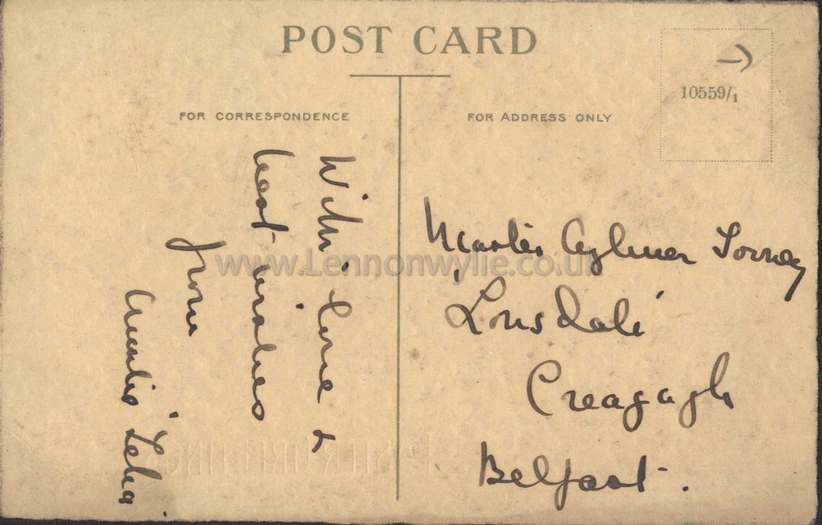 POST CARD
10559/1
FOR CORRESPONDENCE
FOR ADDRESS ONLY
With love &
best wishes
from
Auntie
Master Aylmer Torney
'Lonsdale'
Creagagh
Belfast.
www.Lennonwylie.co.uk
EASTER GREETINGS